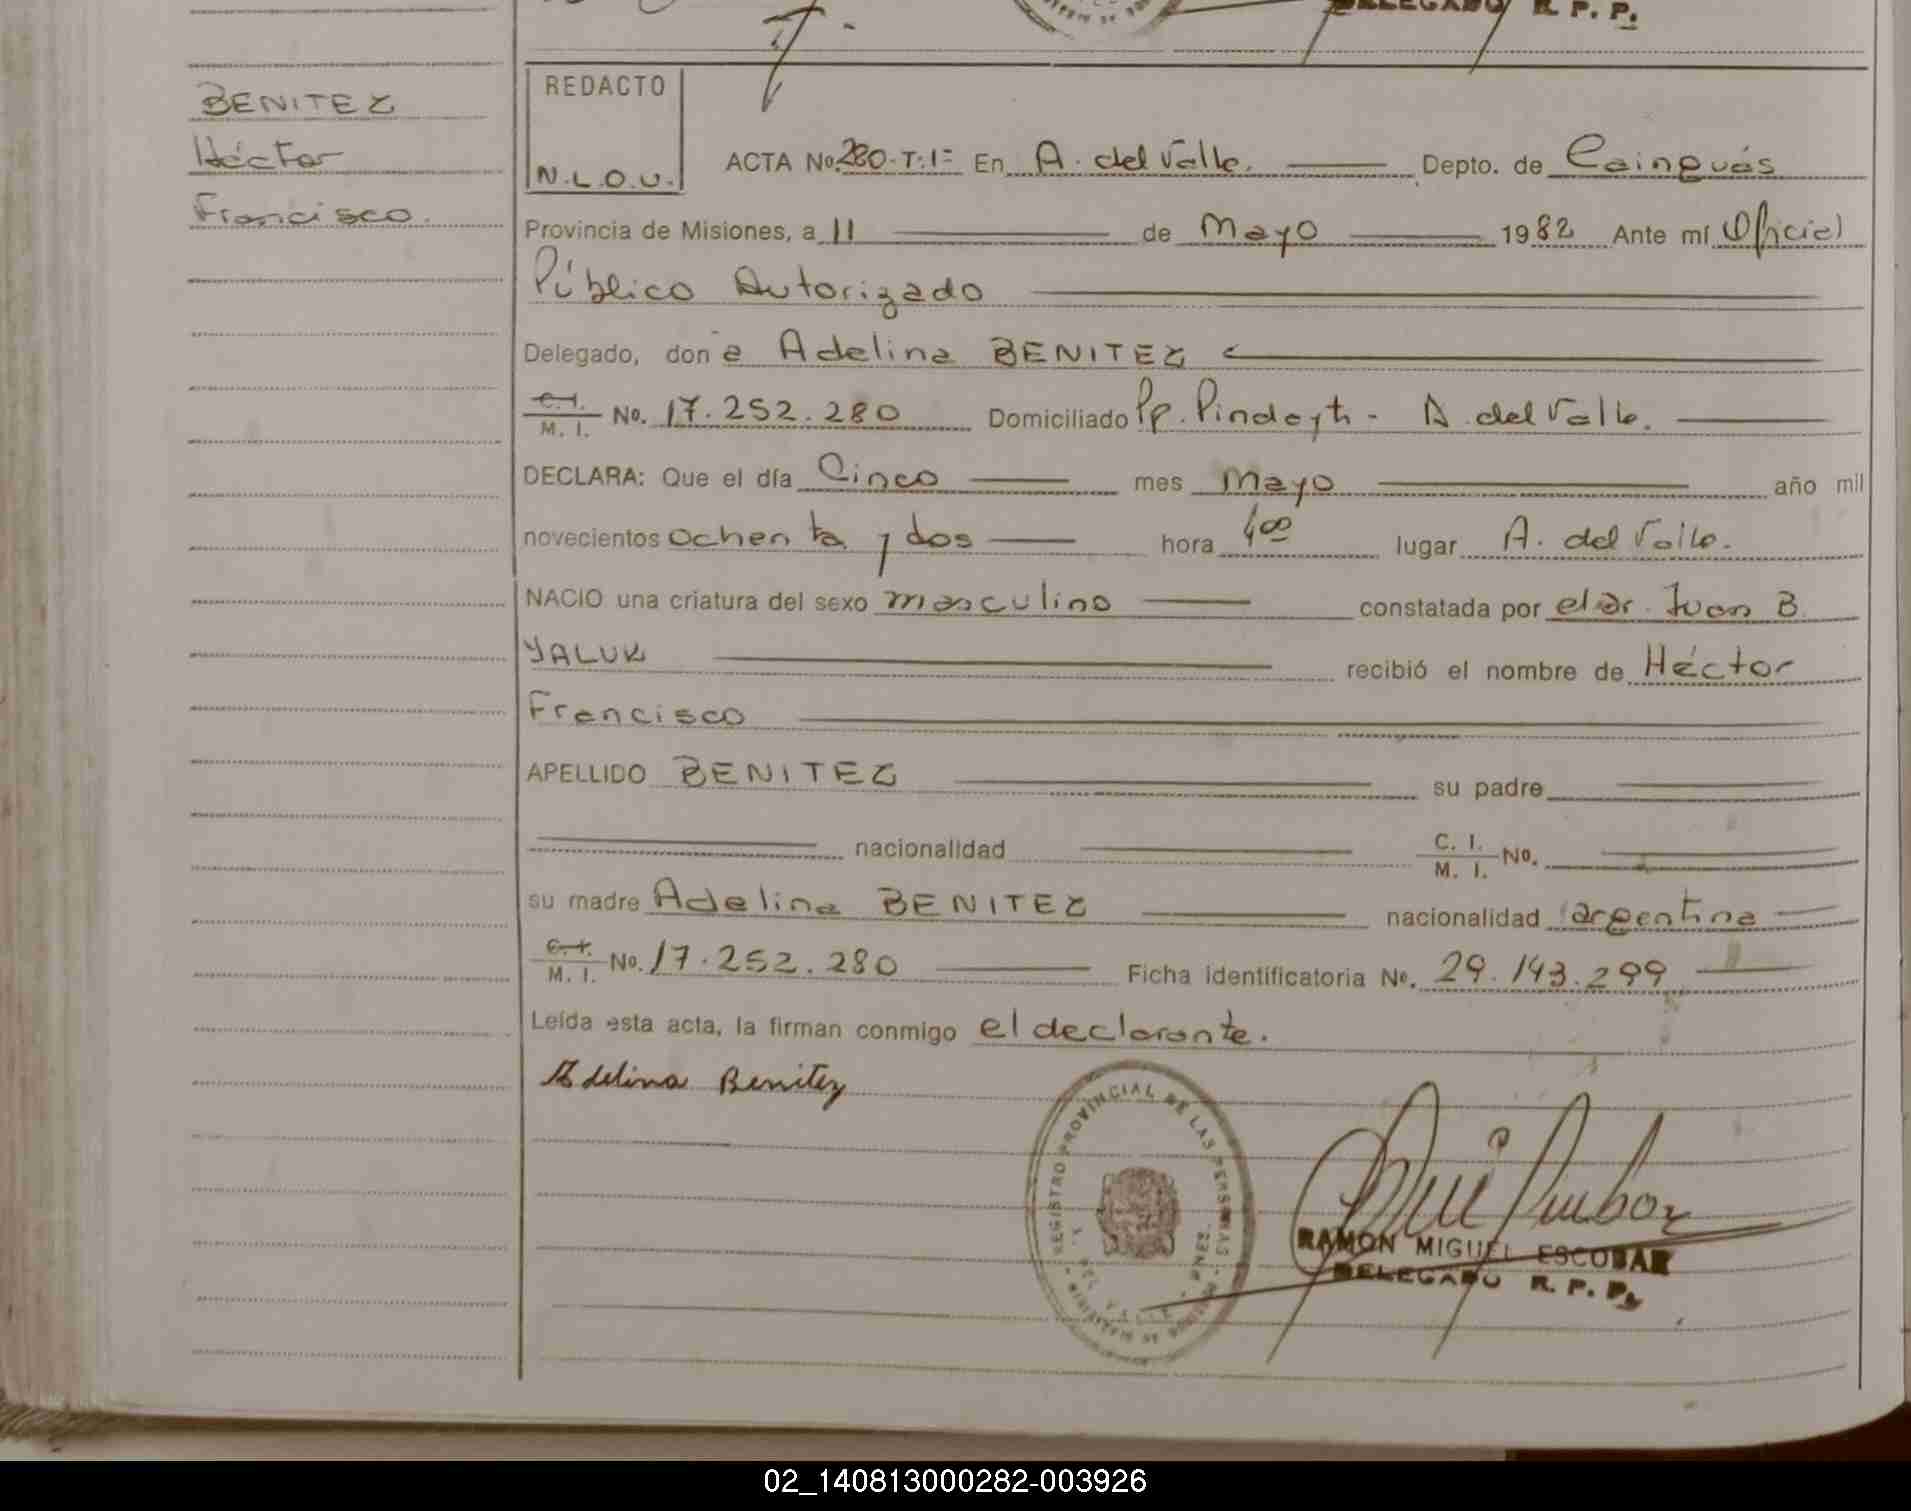 DELEGADO R. P. P.
BENITEZ
Héctor
Francisco.
REDACTO
N.L.O.U.
ACTA No. 280-T:1= En A. del Valle. Depto. de Cainguás
Provincia de Misiones, a 11 de Mayo 1982 Ante mí Oficial
Público Autorizado
Delegado, don a Adelina BENITEZ
C. I. M. I. No. 17.252.280 Domiciliado Pp. Pindayti - A. del Valle.
DECLARA: Que el día Cinco mes Mayo año mil
novecientos ochenta y dos hora 4⁰⁰ lugar A. del Valle.
NACIO una criatura del sexo masculino constatada por el dr. Juan B.
YALUK recibió el nombre de Héctor
Francisco
APELLIDO BENITEZ su padre
nacionalidad C. I. M. I. No.
su madre Adelina BENITEZ nacionalidad argentina
C. I. M. I. No. 17.252.280 Ficha identificatoria No. 29.143.299
Leída esta acta, la firman conmigo el declarante.
Adelina Benitez
REGISTRO PROVINCIAL DE LAS PERSONAS
RAMON MIGUEL ESCOBAR
DELEGADO R. P. P.
02_140813000282-003926